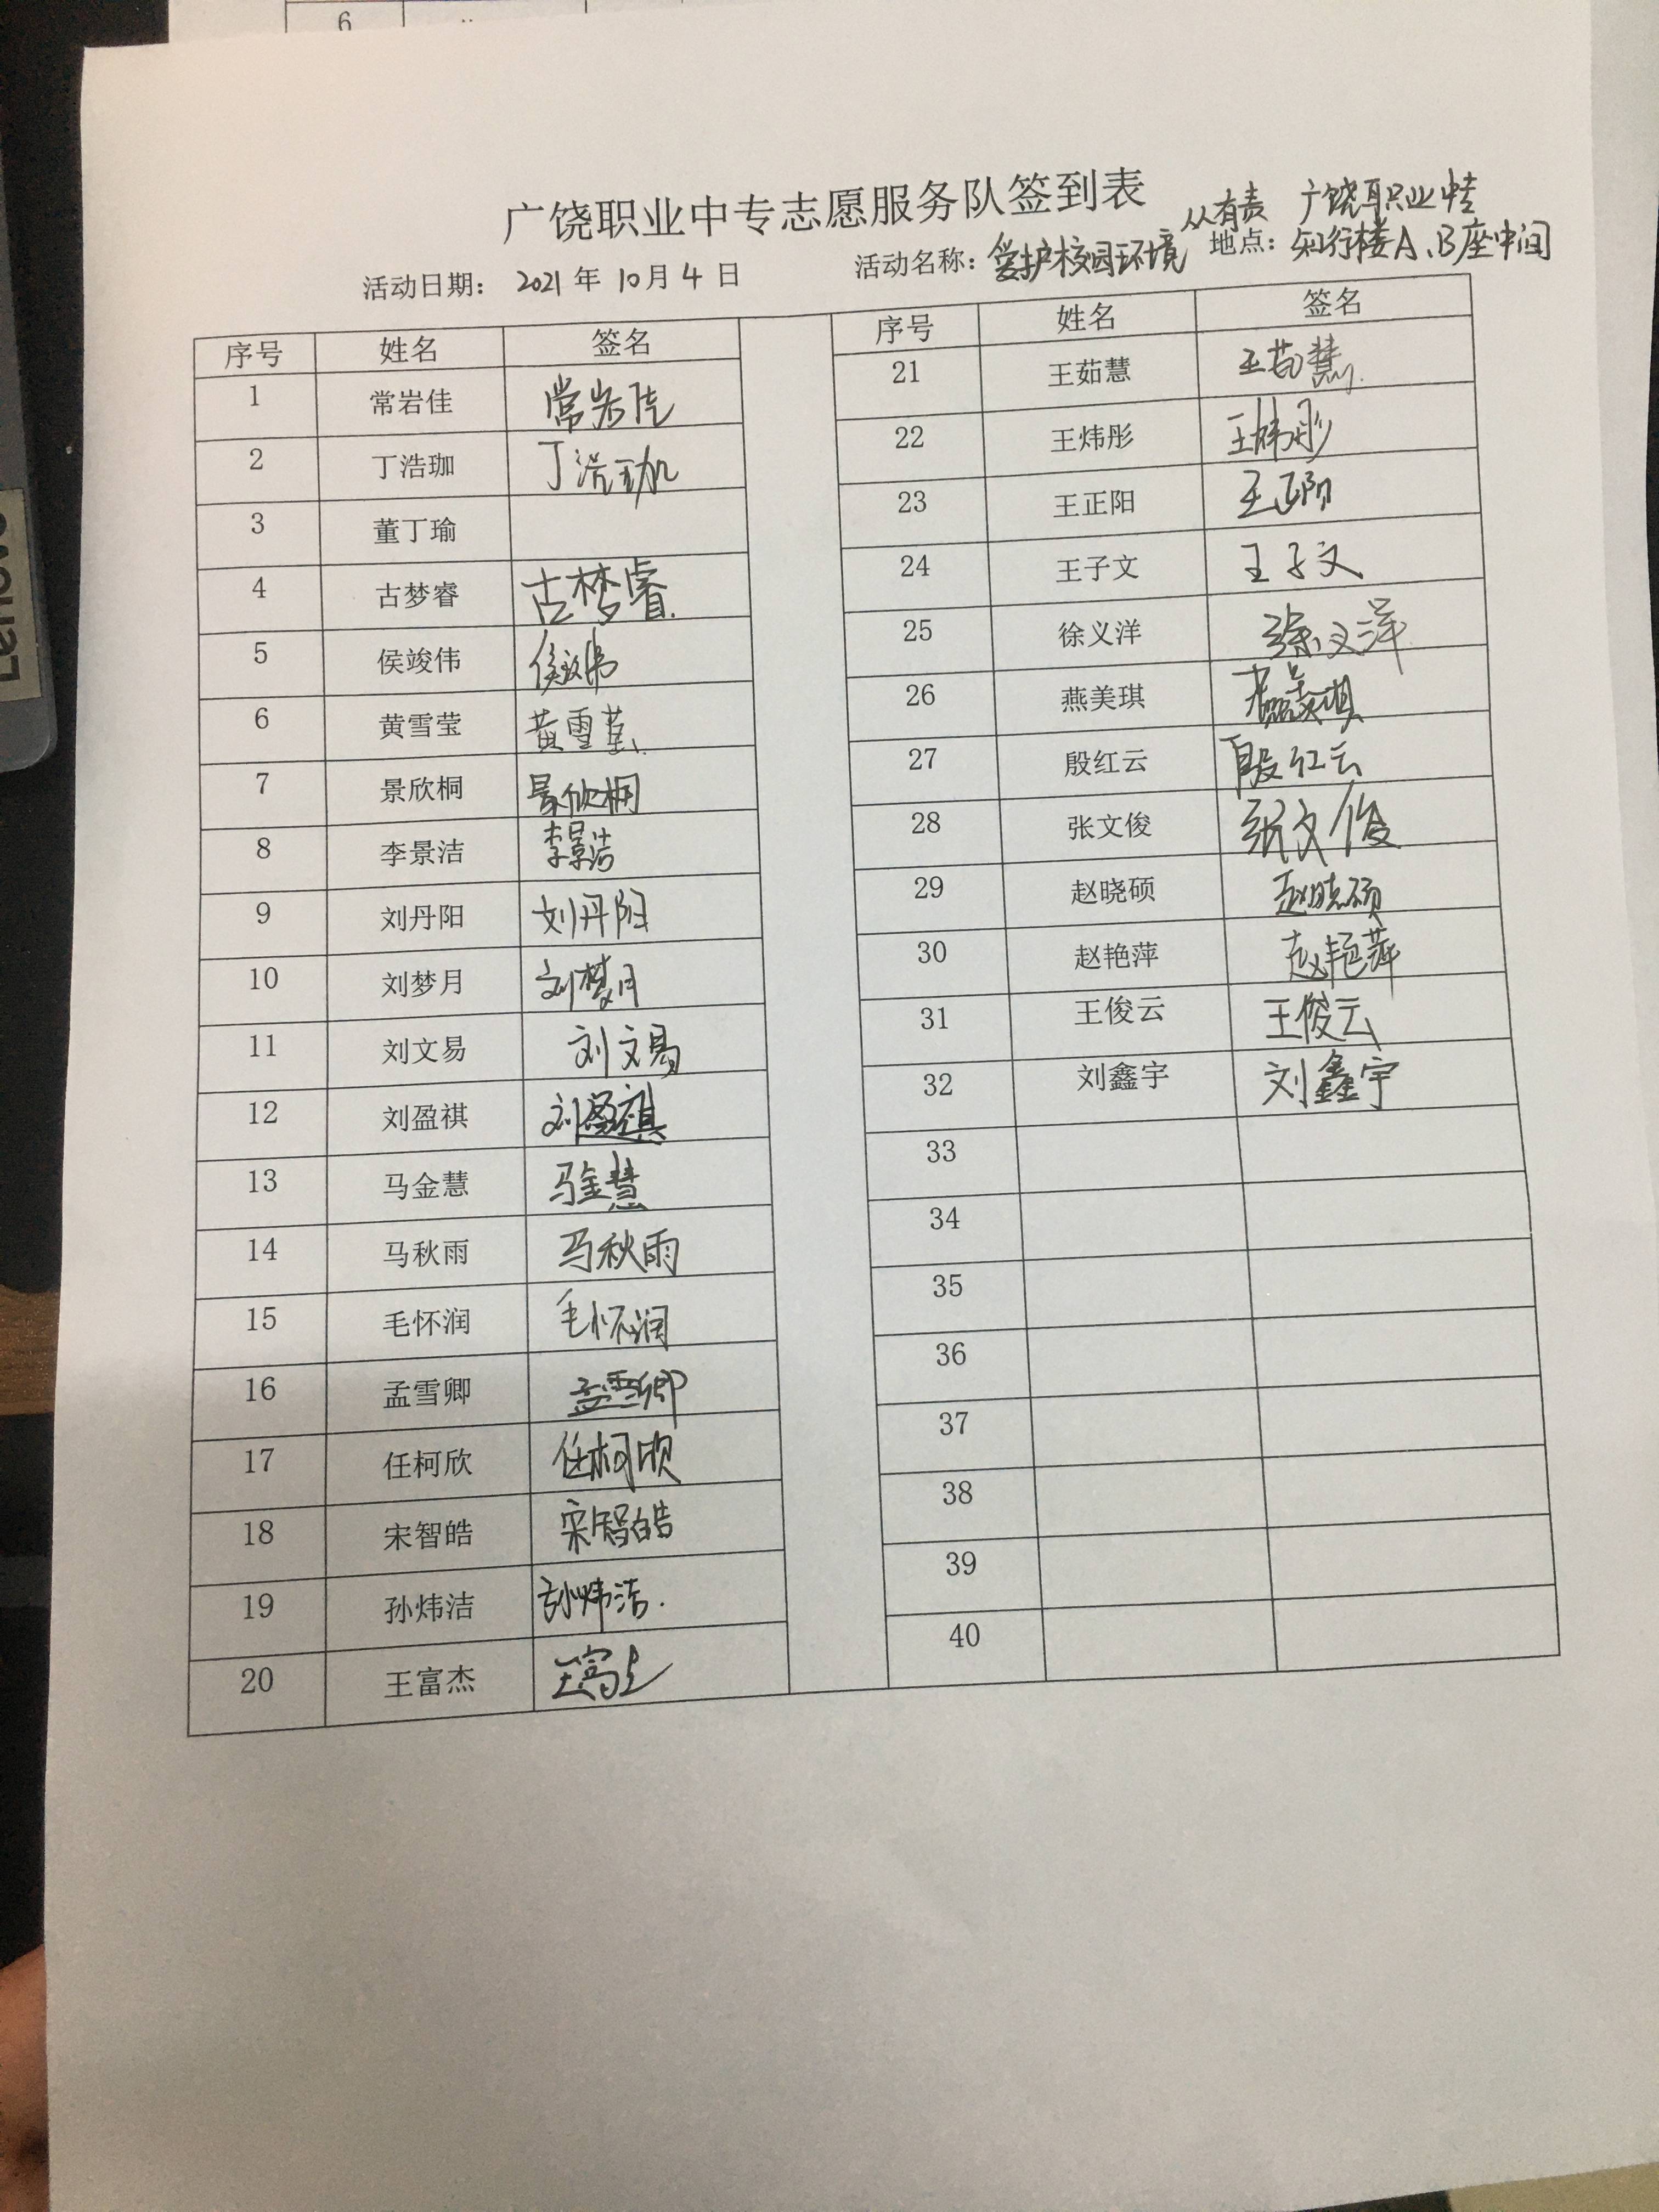 6
Lenovo
广饶职业中专志愿服务队签到表
从有责 广饶职业中专
活动日期: 2021年10月4日 活动名称: 爱护校园环境 地点: 知行楼A、B座中间
序号 姓名 签名 序号 姓名 签名
1 常岩佳 常岩佳 21 王茹慧 王茹慧
2 丁浩珈 丁浩珈 22 王炜彤 王炜彤
3 董丁瑜 23 王正阳 王正阳
4 古梦睿 古梦睿 24 王子文 王子文
5 侯竣伟 侯竣伟 25 徐义洋 徐义洋
6 黄雪莹 黄雪莹 26 燕美琪 燕美琪
7 景欣桐 景欣桐 27 殷红云 殷红云
8 李景洁 李景洁 28 张文俊 张文俊
9 刘丹阳 刘丹阳 29 赵晓硕 赵晓硕
10 刘梦月 刘梦月 30 赵艳萍 赵艳萍
11 刘文易 刘文易 31 王俊云 王俊云
12 刘盈祺 刘盈祺 32 刘鑫宇 刘鑫宇
13 马金慧 马金慧 33
14 马秋雨 马秋雨 34
15 毛怀润 毛怀润 35
16 孟雪卿 孟雪卿 36
17 任柯欣 任柯欣 37
18 宋智皓 宋智皓 38
19 孙炜洁 孙炜洁. 39
20 王富杰 王富杰 40